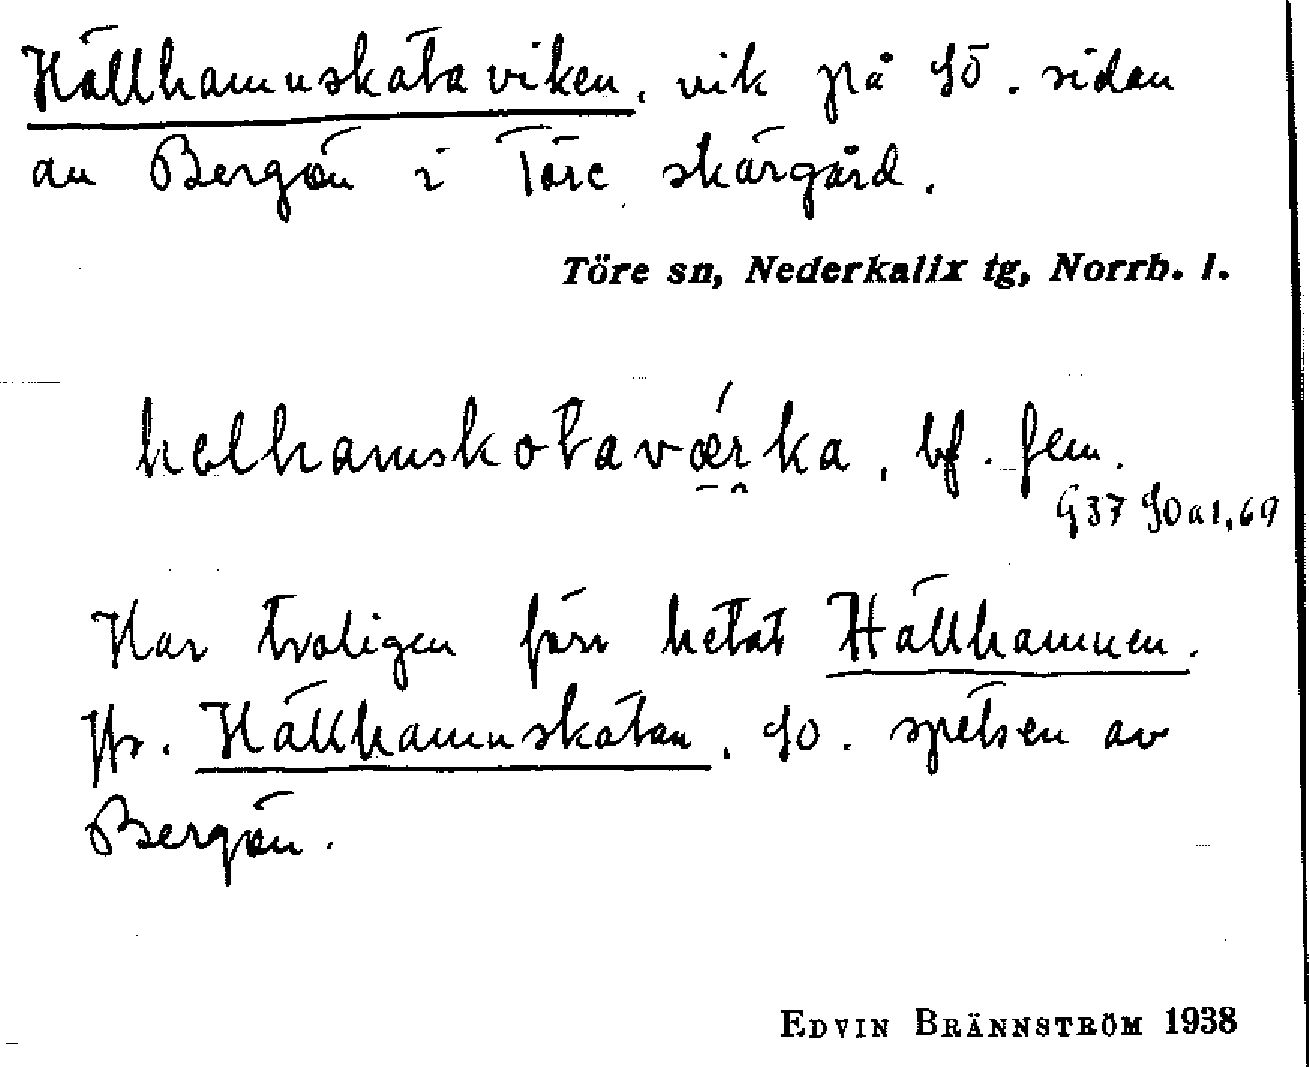 Hällhamnskataviken, vik på SÖ. sidan
av Bergön i Töre skärgård.
Töre sn, Nederkalix tg, Norrb. l.
helhamskotavǽrka, bf. fem.
G37 SO a 1, 69
Har troligen förr hetat Hällhamnen.
Jfr. Hällhamnskatan, SO. spetsen av
Bergön.
EDVIN BRÄNNSTRÖM 1938